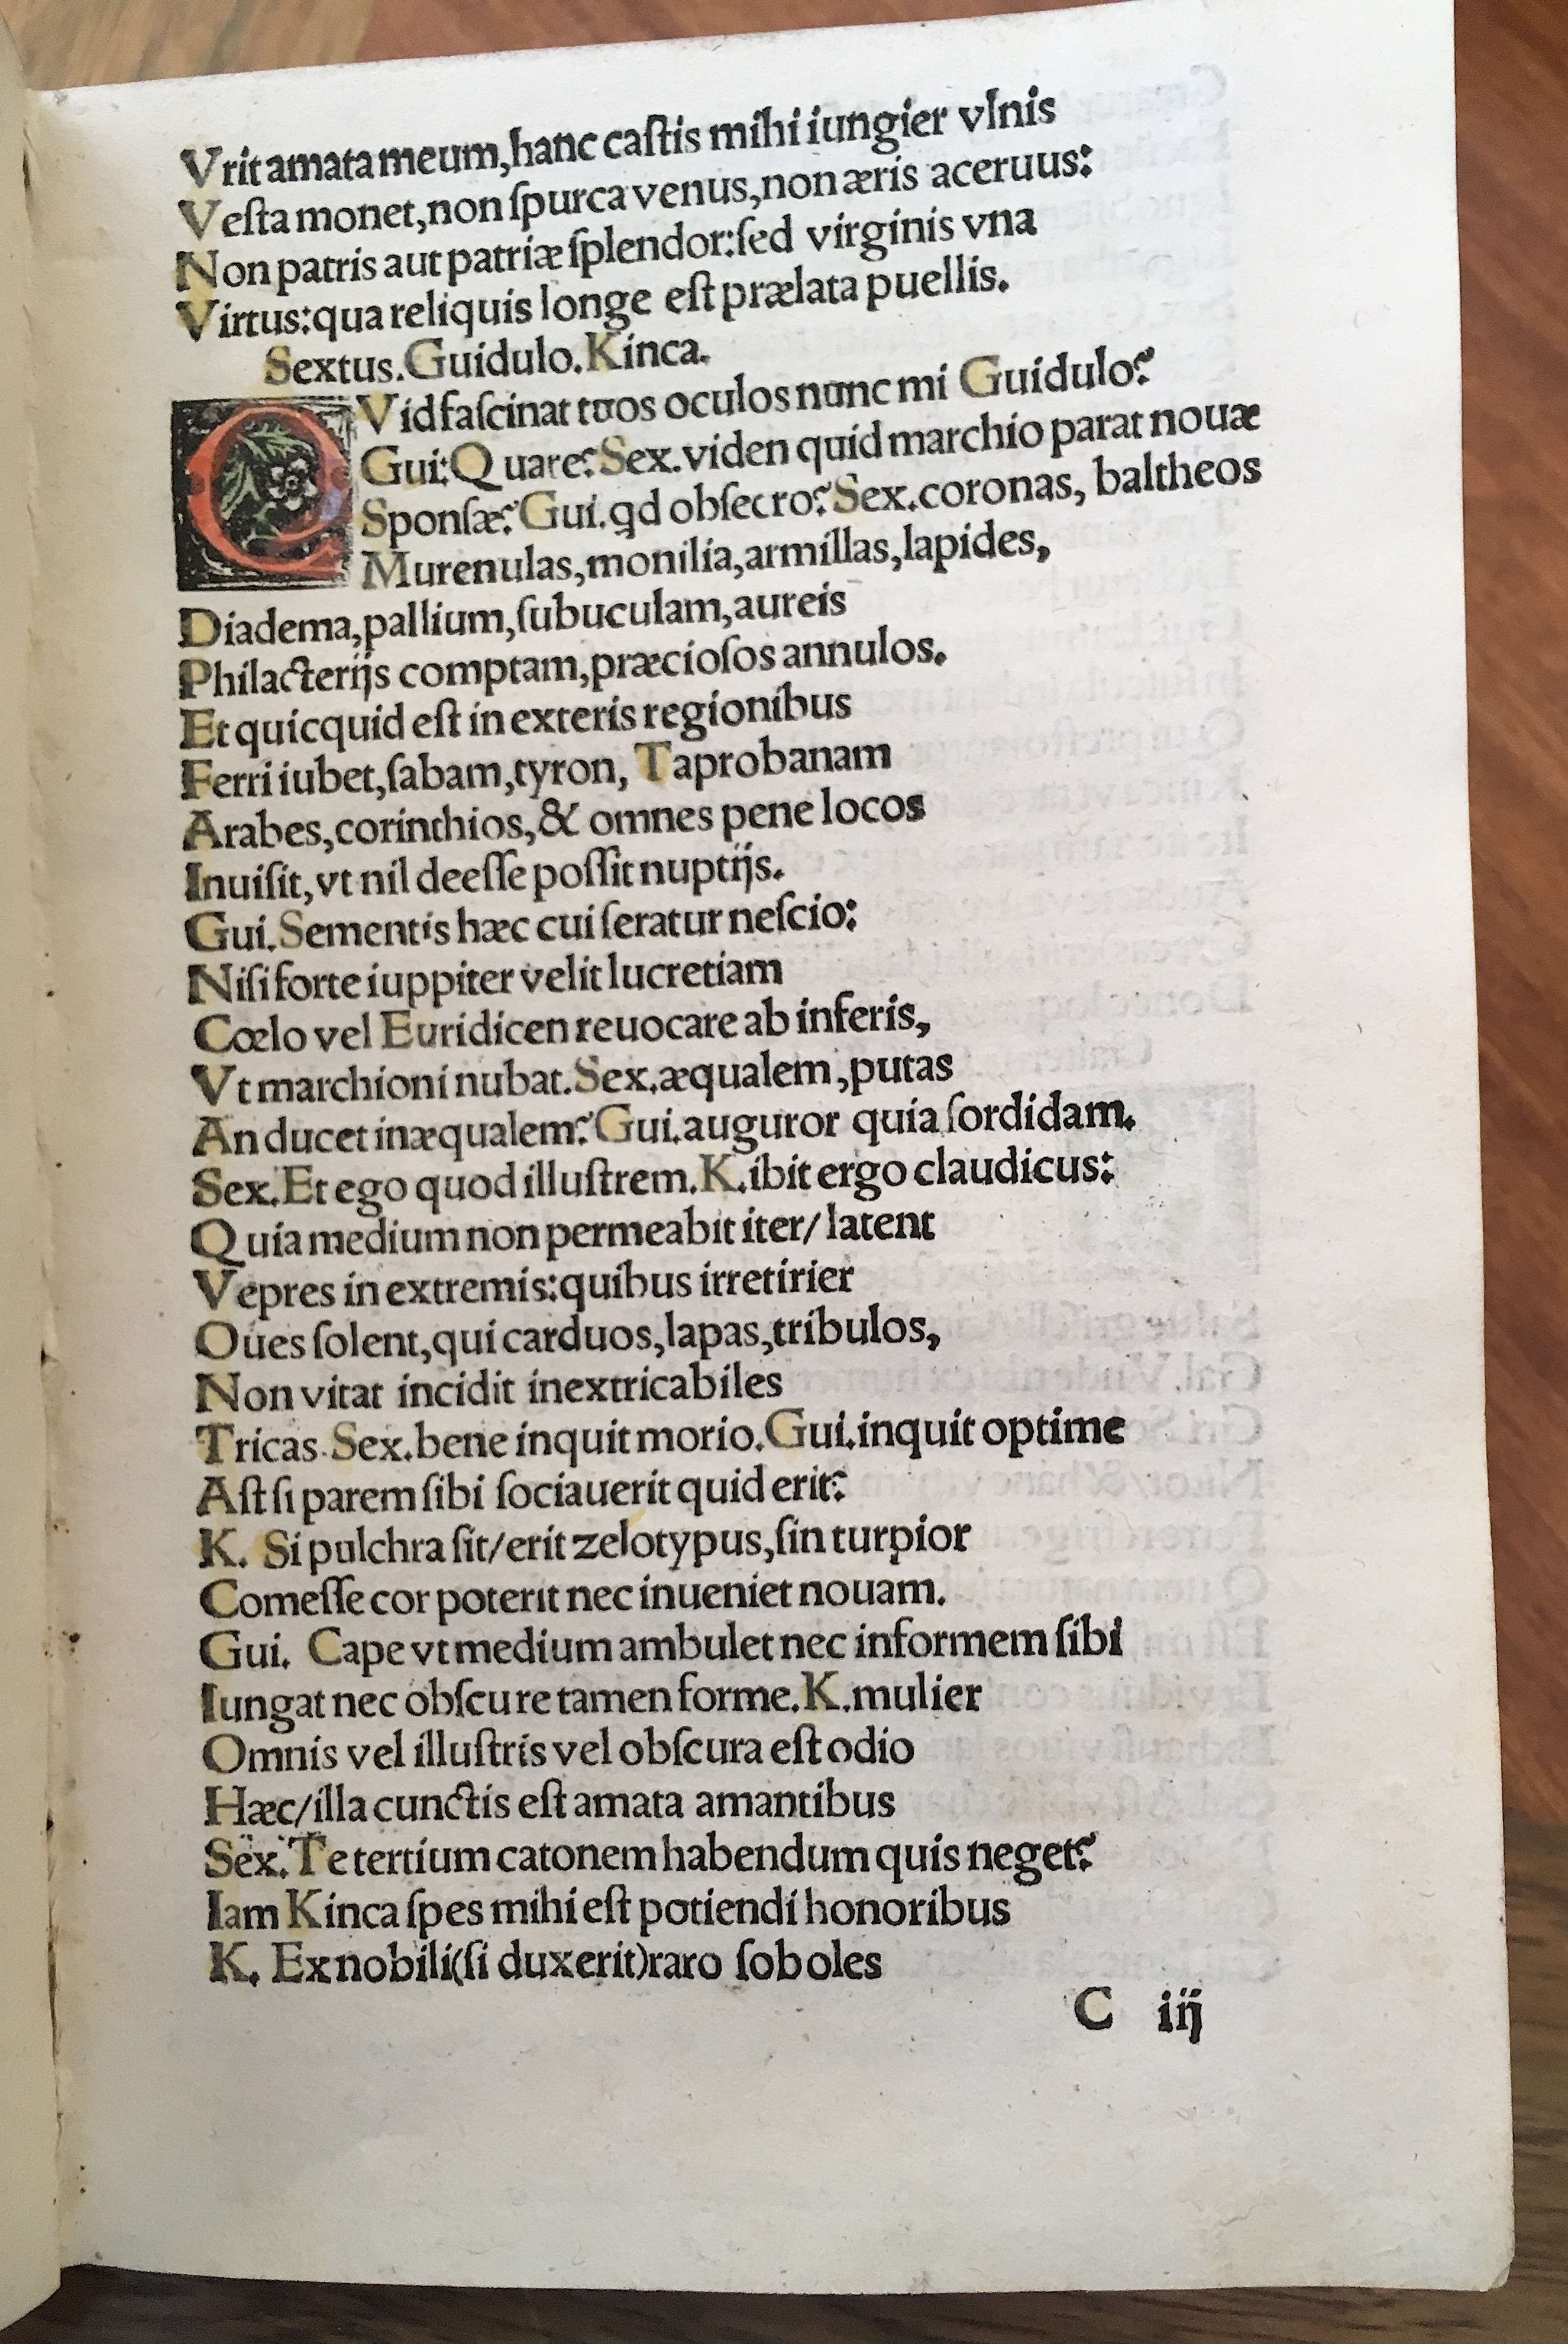 Vrit amata meum,hanc caſtis mihi iungier vlnis
Veſta monet,non ſpurca venus,non æris aceruus:
Non patris aut patriæ ſplendor:ſed virginis vna
Virtus:qua reliquis longe eſt prælata puellis.
Sextus.Guidulo.Kinca.
QVid faſcinat tuos oculos nunc mi Guidulo?
Gui:Quare?Sex.viden quid marchio parat nouæ
Sponſæ?Gui.qd obſecro?Sex.coronas, baltheos
Murenulas,monilia,armillas,lapides,
Diadema,pallium,ſubuculam,aureis
Philacterijs comptam,præcioſos annulos.
Et quicquid eſt in exteris regionibus
Ferri iubet,ſabam,tyron, Taprobanam
Arabes,corinthios,& omnes pene locos
Inuiſit,vt nil deeſſe poſſit nuptijs.
Gui.Sementis hæc cui ſeratur neſcio:
Niſi forte iuppiter velit lucretiam
Cœlo vel Euridicen reuocare ab inferis,
Vt marchioni nubat.Sex.æqualem,putas
An ducet inæqualem?Gui.auguror quia ſordidam.
Sex.Et ego quod illuſtrem.K.ibit ergo claudicus:
Quia medium non permeabit iter/latent
Vepres in extremis:quibus irretirier
Oues ſolent,qui carduos,lapas,tribulos,
Non vitat incidit inextricabiles
Tricas.Sex.bene inquit morio.Gui.inquit optime
Aſt ſi parem ſibi ſociauerit quid erit?
K. Si pulchra ſit/erit zelotypus,ſin turpior
Comeſſe cor poterit nec inueniet nouam.
Gui. Cape vt medium ambulet nec informem ſibi
Iungat nec obſcure tamen forme.K.mulier
Omnis vel illuſtris vel obſcura eſt odio
Hæc/illa cunctis eſt amata amantibus
Sex.Te tertium catonem habendum quis neget?
Iam Kinca ſpes mihi eſt potiendi honoribus
K. Ex nobili(ſi duxerit)raro ſoboles
C iij